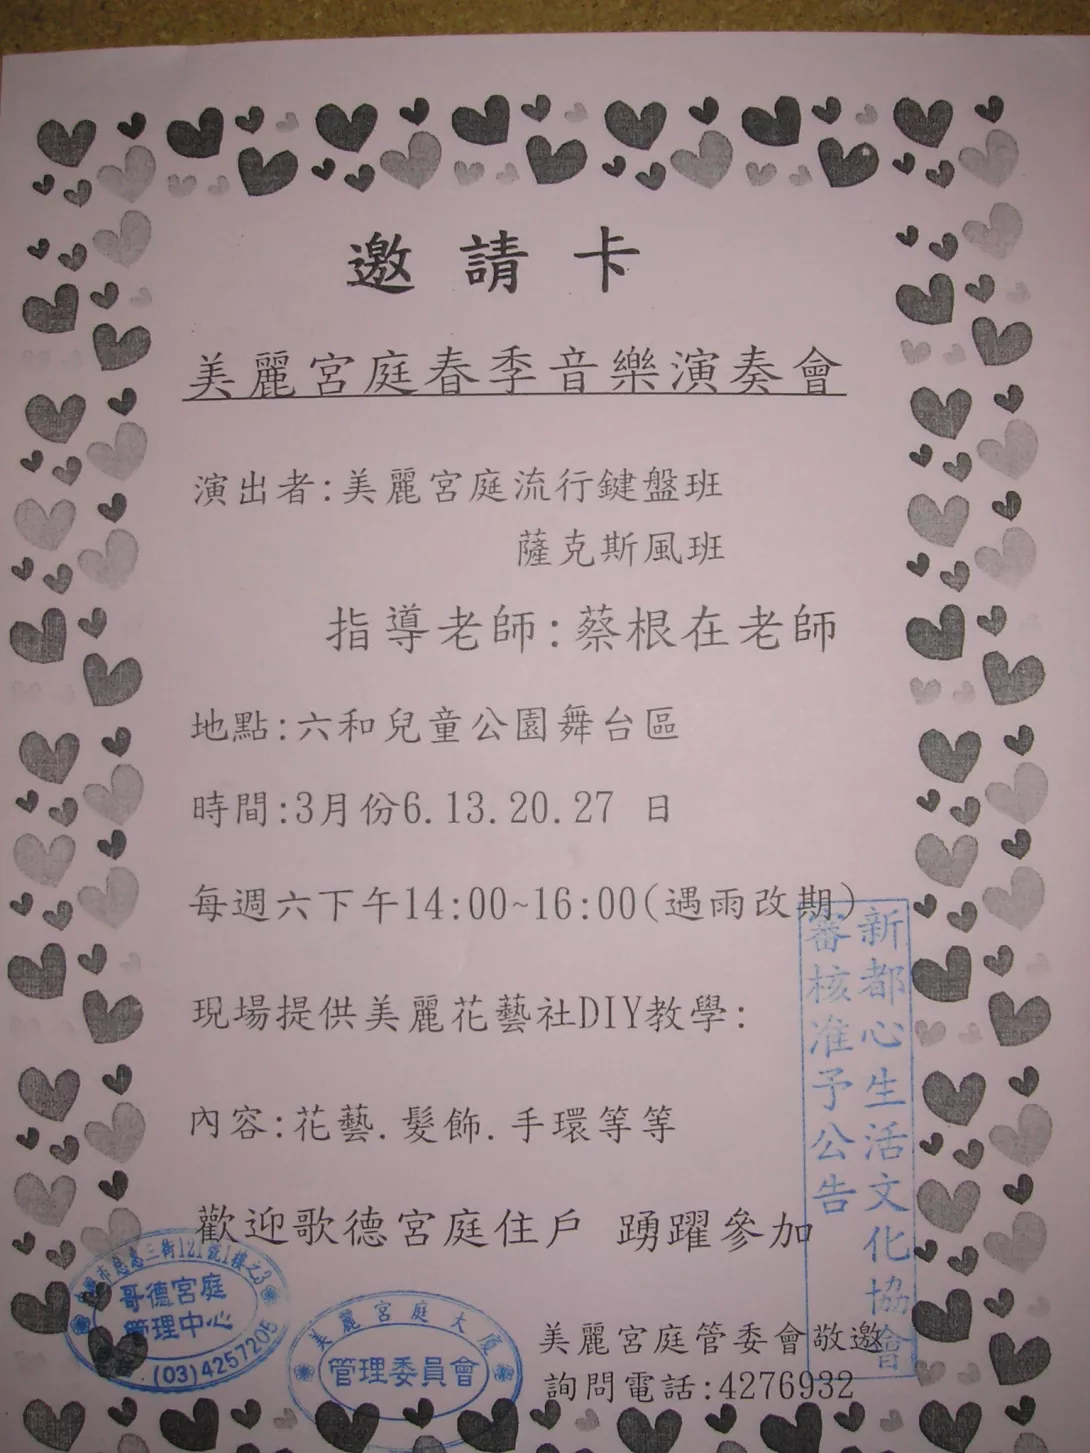 邀請卡
美麗宮庭春季音樂演奏會
演出者:美麗宮庭流行鍵盤班
薩克斯風班
指導老師:蔡根在老師
地點:六和兒童公園舞台區
時間:3月份6.13.20.27 日
每週六下午14:00~16:00(遇雨改期)
現場提供美麗花藝社DIY教學:
內容:花藝.髮飾.手環等等
歡迎歌德宮庭住戶 踴躍參加
美麗宮庭管委會敬邀
詢問電話:4276932
新都心生活文化協會
審核准予公告
市息息三街121號1樓之3
哥德宮庭
管理中心
(03)4257205
美麗宮庭大廈
管理委員會